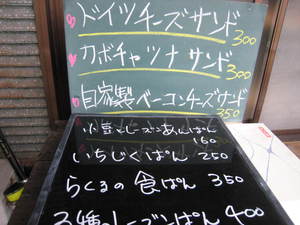 ドイツチーズサンド
300
カボチャツナサンド
300
自家製ベーコンチーズサンド
350
小豆とチーズあんぱん
160
いちじくぱん 250
らくるの食ぱん 350
3種のレーズンぱん 400